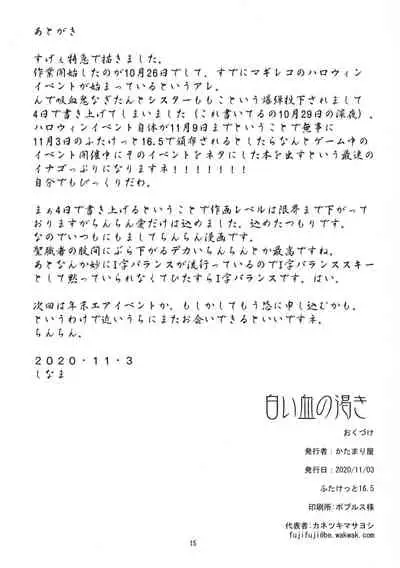 あとがき
すげぇ特急で描きました。
作業開始したのが10月26日でして、すでにマギレコのハロウィン
イベントが始まっているというアレ。
んで吸血鬼なぎたんとシスターももこという爆弾投下されまして
4日で書き上げてしまいました（これ書いてるの10月29日の深夜）。
ハロウィンイベント自体が11月9日までということで無事に
11月3日のふたけっと16.5で頒布されるとしたらなんとゲーム中の
イベント開催中にそのイベントをネタにした本を出すという最速の
イナゴっぷりになりますネ！！！！！！！
自分でもびっくりだわ。
まぁ4日で書き上げるということで作画レベルは限界まで下がって
おりますがちんちん愛だけは込めました。込めたつもりです。
なのでいつもにもましてちんちん漫画です。
聖職者の股間にぶら下がるデカいちんちんとか最高ですね。
あとなんか妙にI字バランスが流行っているのでI字バランススキー
として黙っていられなくてひたすらI字バランスです。はい。
次回は年末エアイベントか、もしかしてもう悠に申し込むかも、
というわけで近いうちにまたお会いできるといいですネ。
ちんちん。
２０２０・１１・３
しなま
白い血の渇き
おくづけ
発行者：かたまり屋
発行日：2020/11/03
ふたけっと16.5
印刷所：ポプルス様
代表者：カネツキマサヨシ
fujifuji@be.wakwak.com
15